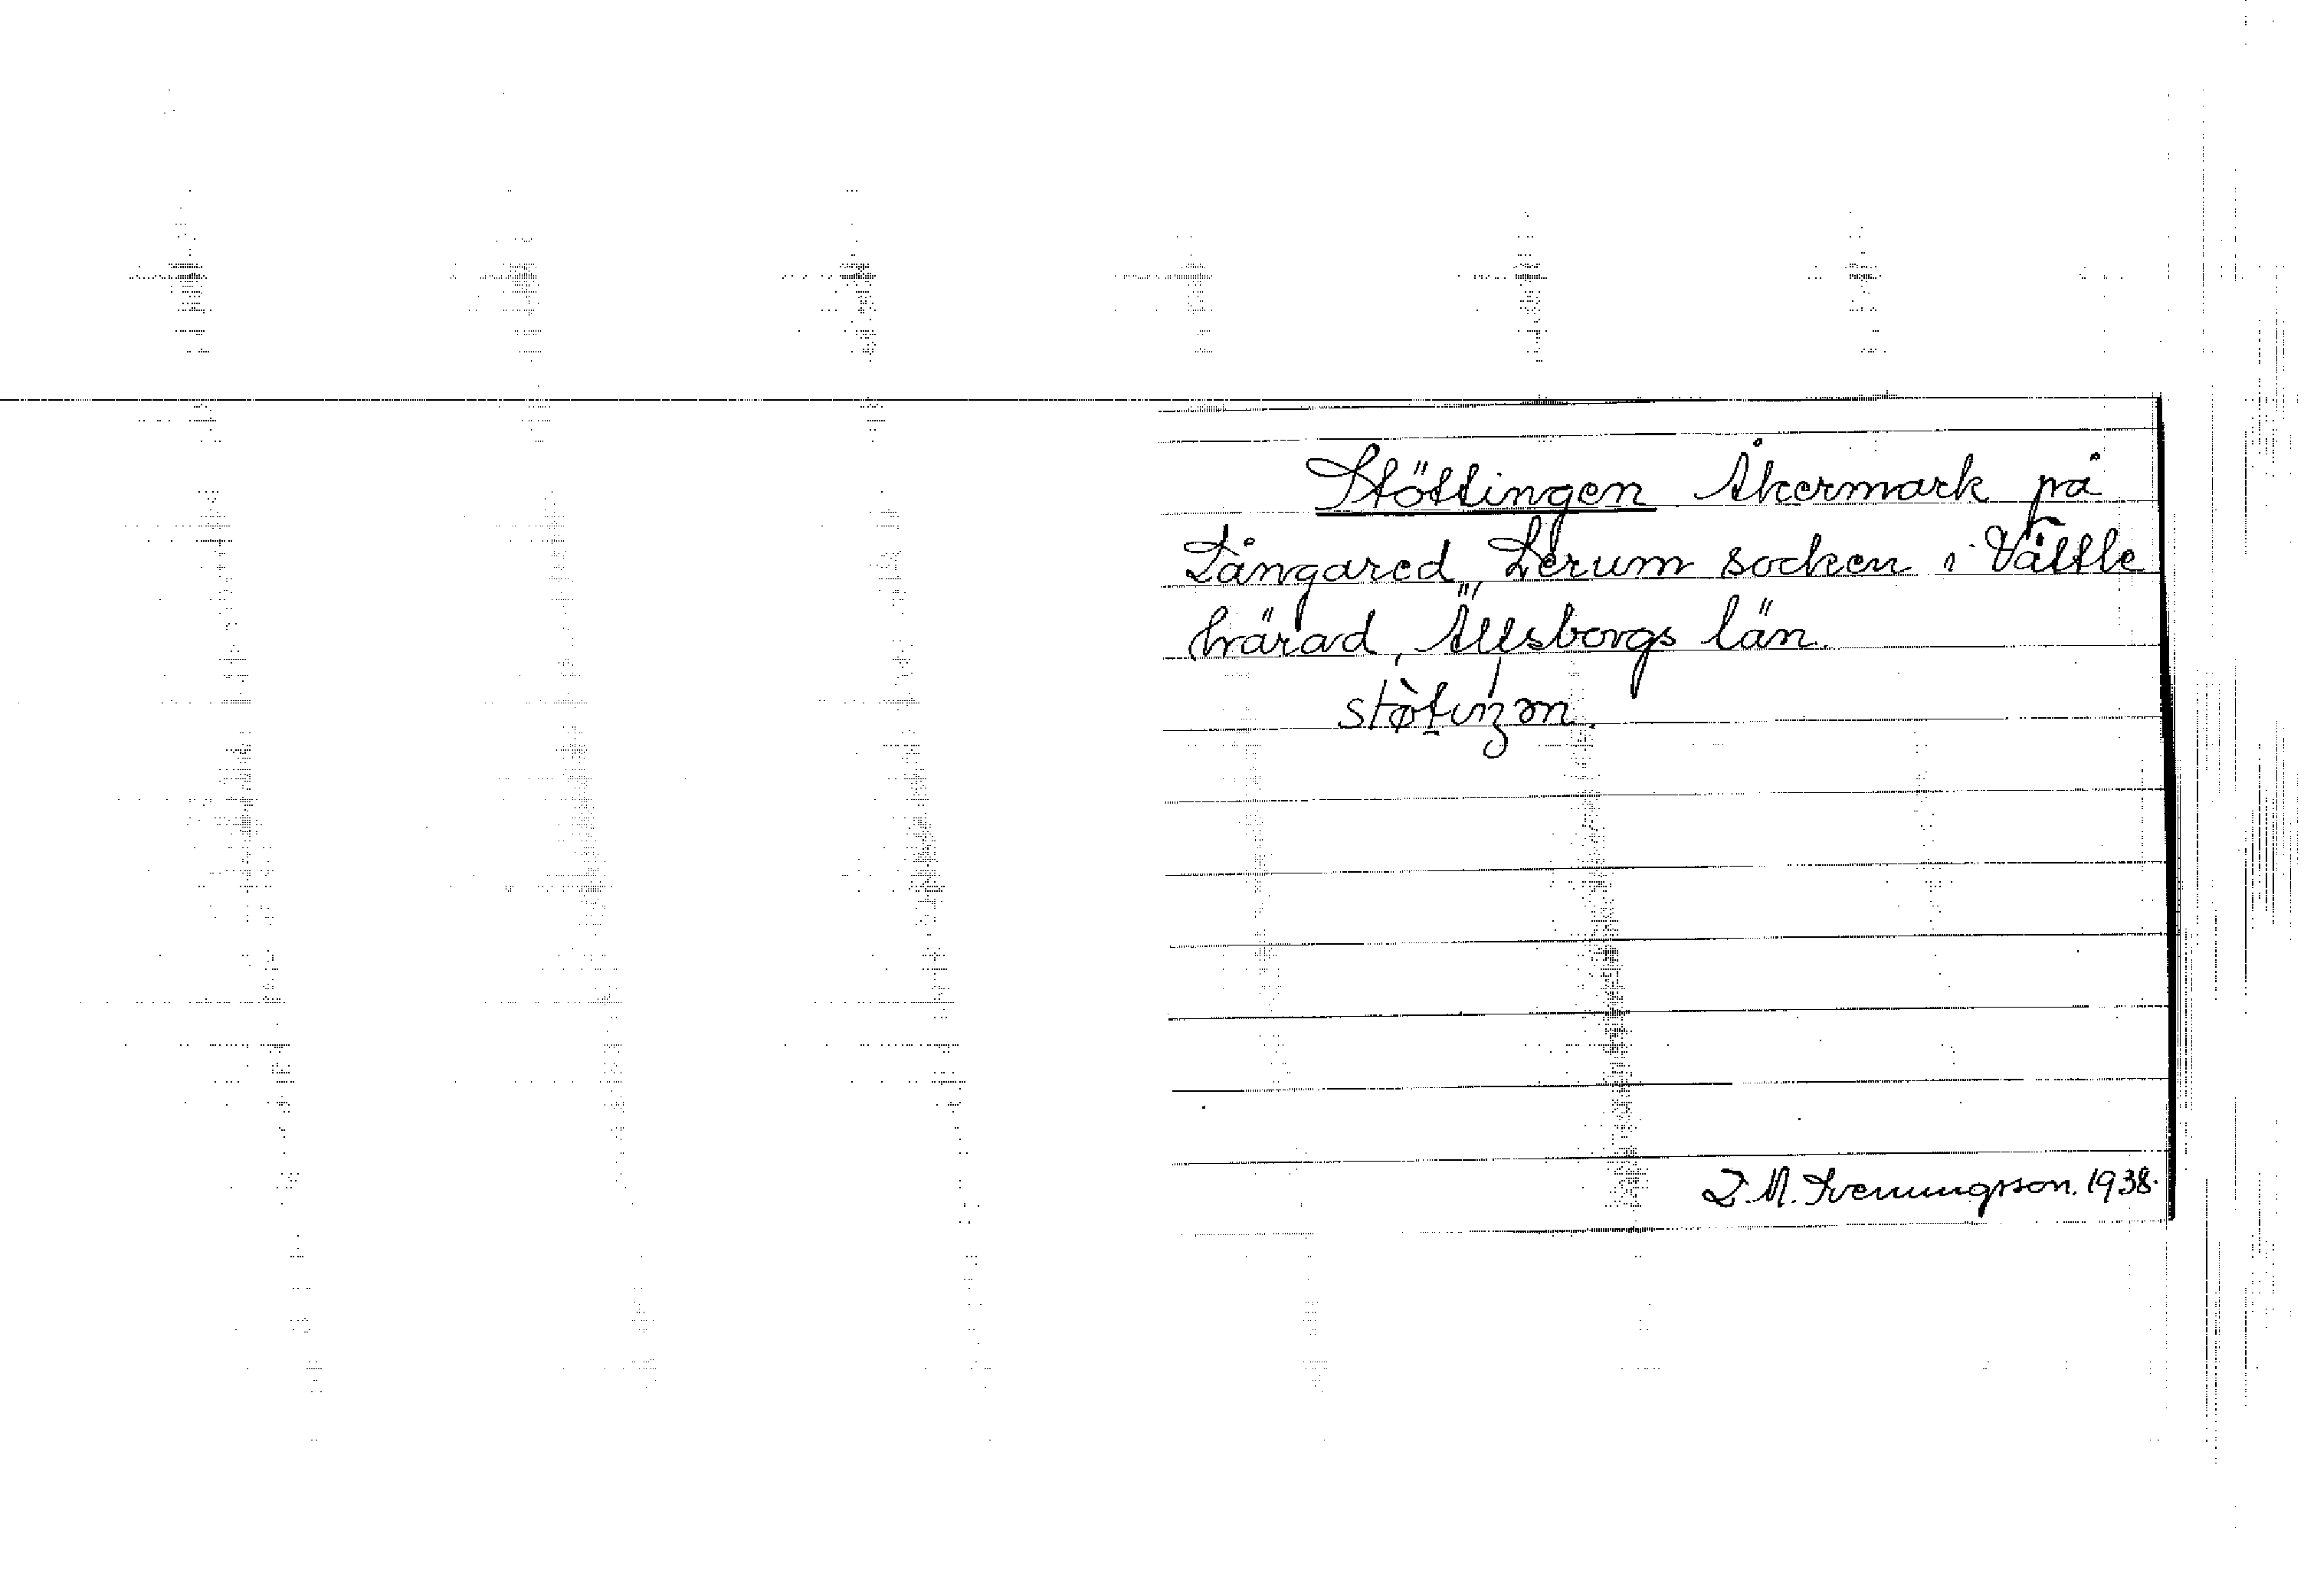 Stöttingen Åkermark på
Långared, Lerum socken i Vättle
härad, Älvsborgs län.
stòtiŋən.
D. M. Svenningsson. 1938.